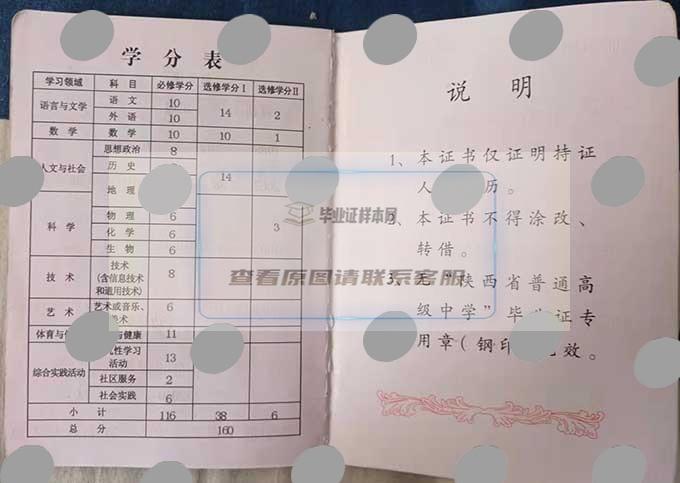 学 分 表
学习领域 科 目 必修学分 选修学分Ⅰ 选修学分Ⅱ
语言与文学 语 文 10 14 2
外 语 10
数 学 数 学 10 10 1
人文与社会 思想政治 8 14
历 史
地 理
科 学 3
物 理 6
化 学 6
生 物 6
技 术 技术 8
(含信息技术
和通用技术)
艺 术 艺术或音乐、 6
术
体育与 与健康 11
综合实践活动 性学习 13
活动
社区服务 2
社会实践 6
小 计 116 38 6
总 分 160
说 明
1、本证书仅证明持证
人 历。
、本证书不得涂改、
转借。
3、无“陕西省普通高
级中学”毕 证专
用章(钢印 效。
毕业证样本网
查看原图请联系客服